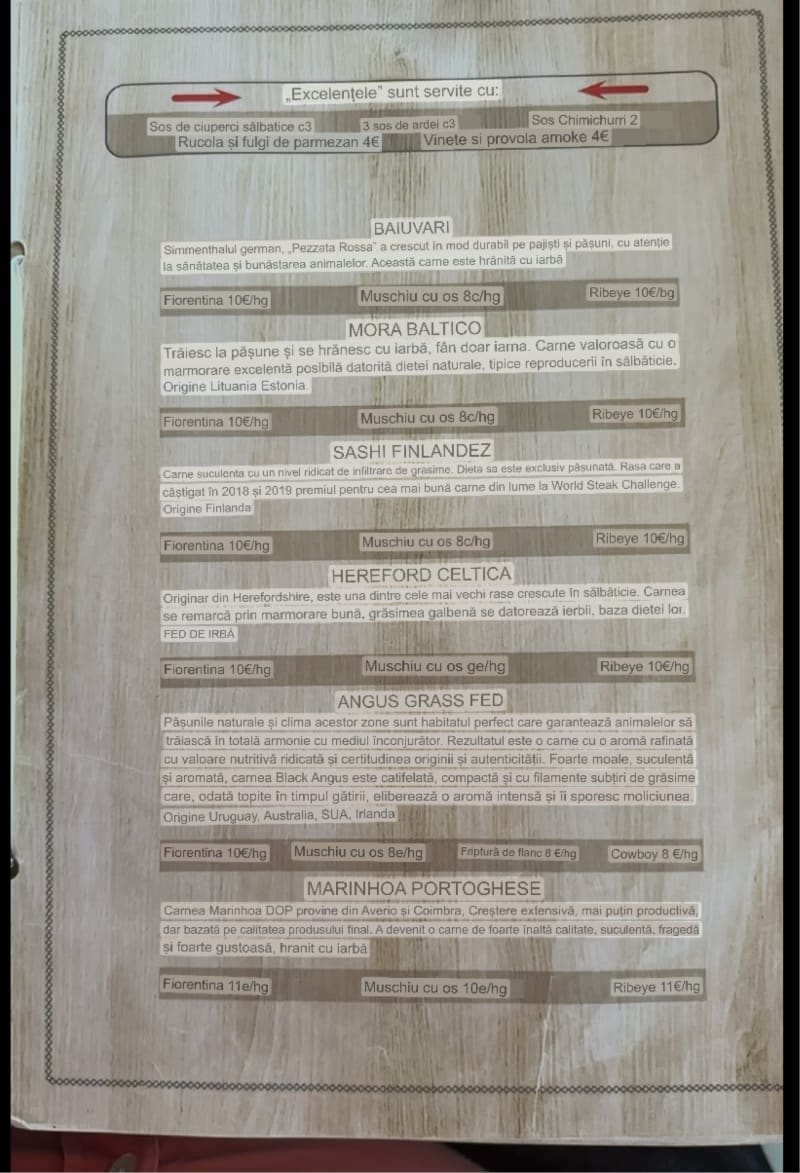 „Excelențele” sunt servite cu:
Sos de ciuperci sălbatice c3 3 sos de ardei c3 Sos Chimichurri 2
Rucola și fulgi de parmezan 4€ Vinete si provola amoke 4€
BAIUVARI
Simmenthalul german, „Pezzata Rossa” a crescut în mod durabil pe pajiști și pășuni, cu atenție
la sănătatea și bunăstarea animalelor. Această carne este hrănită cu iarbă
Fiorentina 10€/hg Muschiu cu os 8c/hg Ribeye 10€/bg
MORA BALTICO
Trăiesc la pășune și se hrănesc cu iarbă, fân doar iarna. Carne valoroasă cu o
marmorare excelentă posibilă datorită dietei naturale, tipice reproducerii în sălbăticie.
Origine Lituania Estonia.
Fiorentina 10€/hg Muschiu cu os 8c/hg Ribeye 10€/hg
SASHI FINLANDEZ
Carne suculenta cu un nivel ridicat de infiltrare de grasime. Dieta sa este exclusiv pășunată. Rasa care a
câștigat în 2018 și 2019 premiul pentru cea mai bună carne din lume la World Steak Challenge.
Origine Finlanda
Fiorentina 10€/hg Muschiu cu os 8c/hg Ribeye 10€/hg
HEREFORD CELTICA
Originar din Herefordshire, este una dintre cele mai vechi rase crescute în sălbăticie. Carnea
se remarcă prin marmorare bună, grăsimea galbenă se datorează ierbii, baza dietei lor.
FED DE IRBĂ
Fiorentina 10€/hg Muschiu cu os ge/hg Ribeye 10€/hg
ANGUS GRASS FED
Pășunile naturale și clima acestor zone sunt habitatul perfect care garantează animalelor să
trăiască în totală armonie cu mediul înconjurător. Rezultatul este o carne cu o aromă rafinată
cu valoare nutritivă ridicată și certitudinea originii și autenticității. Foarte moale, suculentă
și aromată, carnea Black Angus este catifelată, compactă și cu filamente subțiri de grăsime
care, odată topite în timpul gătirii, eliberează o aromă intensă și îi sporesc moliciunea.
Origine Uruguay, Australia, SUA, Irlanda
Fiorentina 10€/hg Muschiu cu os 8e/hg Friptură de flanc 8 €/hg Cowboy 8 €/hg
MARINHOA PORTOGHESE
Carnea Marinhoa DOP provine din Averio și Coimbra, Creștere extensivă, mai puțin productivă,
dar bazată pe calitatea produsului final. A devenit o carne de foarte înaltă calitate, suculentă, fragedă
și foarte gustoasă, hranit cu iarbă
Fiorentina 11e/hg Muschiu cu os 10e/hg Ribeye 11€/hg